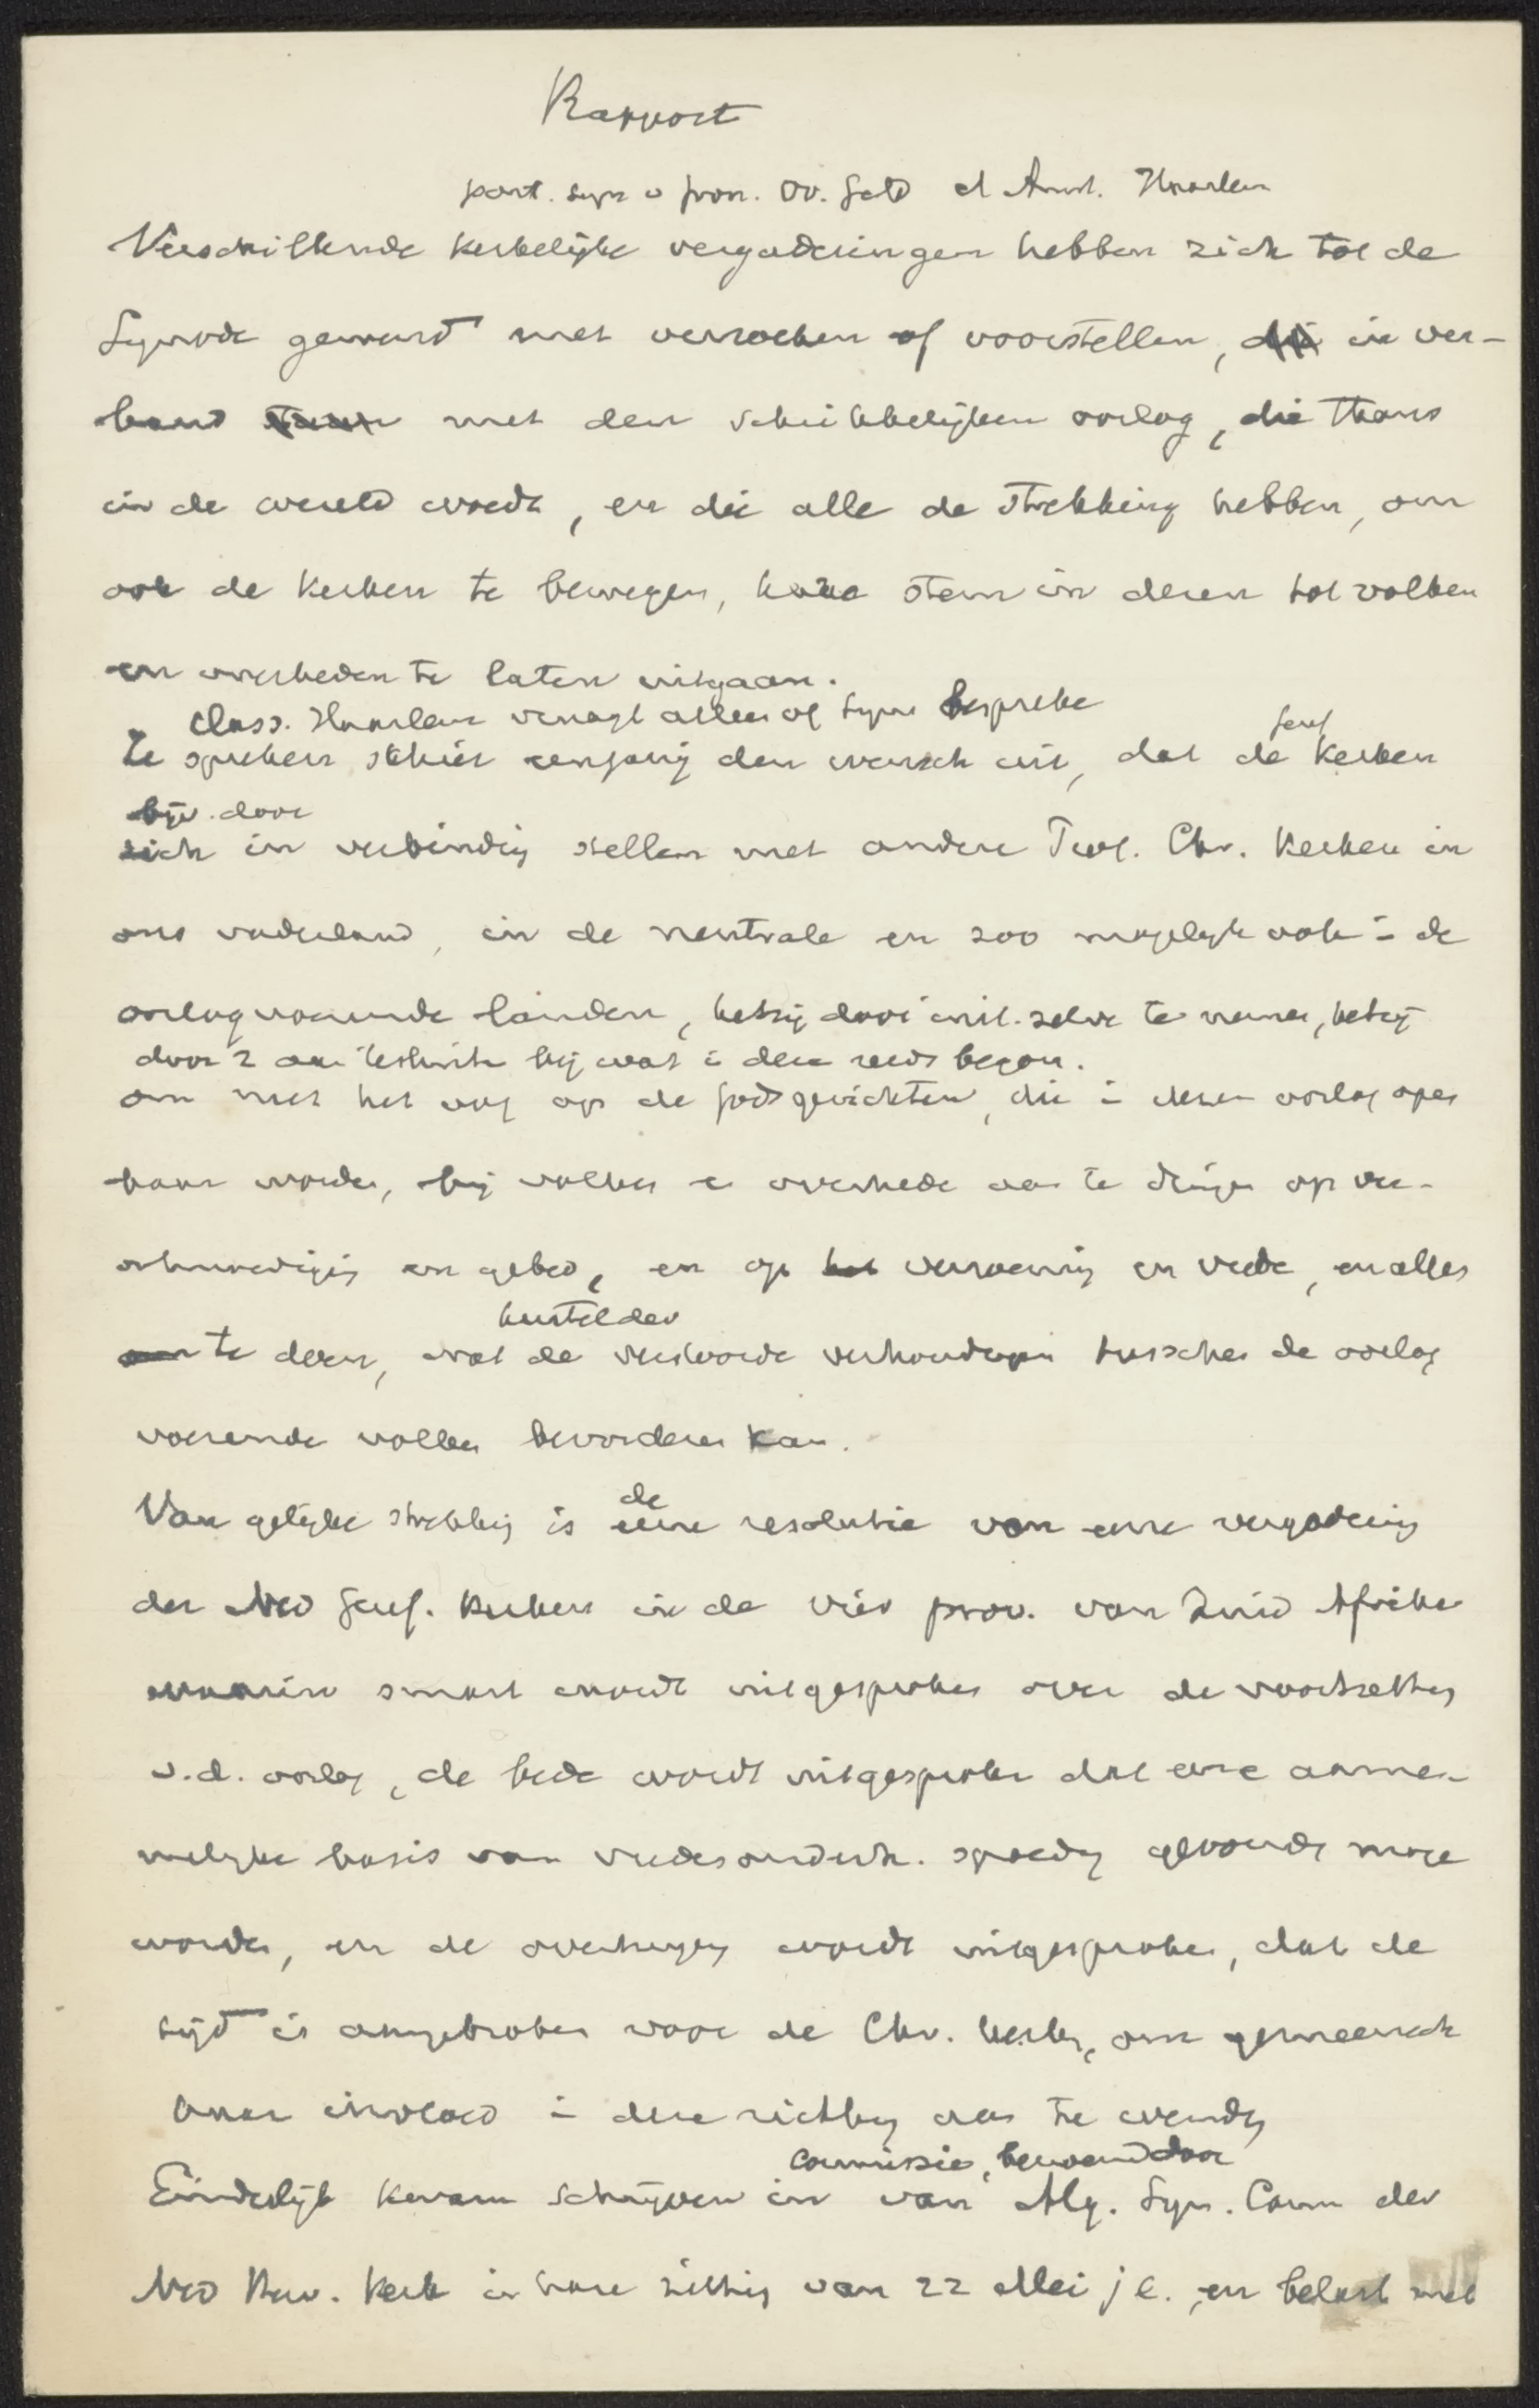 Rapport
part. syn v prov. Ov. Geld cl Amst. Haarlem
Verschillende kerkelijke vergaderingen hebben zich tot de
Synode gewend met verzoeken of voorstellen, die in ver-
band met den schrikkelijken oorlog, die thans
in de wereld woedt, en die alle de strekking hebben, om
ook de kerken te bewegen, hare stem in dezen tot volken
en overheden te laten uitgaan.
class. Haarlem vraagt alleen of Syn bespreke
Ze spreken schier eenparig den wensch uit, dat de Geref kerken
bijv. door
zich in verbinding stellen met andere Prot. Chr. Kerken in
ons vaderland, in de neutrale en zoo mogelijk ook i de
oorlogvoerende landen, hetzij door init. zelve te nemen, hetzij
door z aan te sluiten bij wat i deze reeds begon.
om met het oog op de godsgerichten, die i dezen oorlog open
baar worden, bij volken e overhede aan te dringen op ver-
ootmoediging en gebed, en op verzoening en vrede, en alles
te doen, wat de verstoorde verhoudingen tusschen de oorlog
herstel der
voerende volken bevorderen kan.
Van gelijke strekking is de eene resolutie van eene vergadering
der Ned Geref. Kerken in de vier prov. van Zuid Afrika
waarin smart wordt uitgesproken over de voortzetting
v.d. oorlog, de bede wordt uitgesproken dat eene aanne-
melijke basis van vredesonderh. spoedig gevonde moge
worden, en de overtuiging wordt uitgesproken, dat de
tijd is aangebroken voor de Chr. kerken, om gemeensch
haar invloed i deze richting aan te wenden
commissie, benoemd door
Eindelijk kwam schrijven in van Alg. Syn. Comm der
Ned Herv. Kerk in hare zitting van 22 Mei j l., en belast met